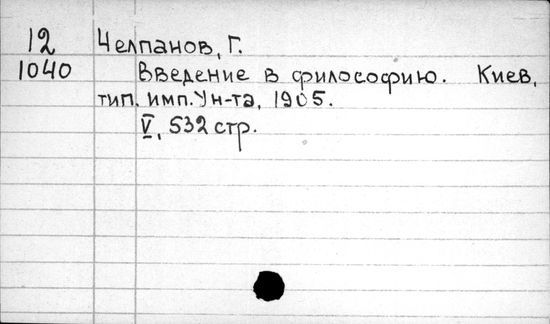 12 Челпанов, Г.
1040 Введение в философию. Киев,
тип. имп. Ун-та, 1905.
V, 532 стр.